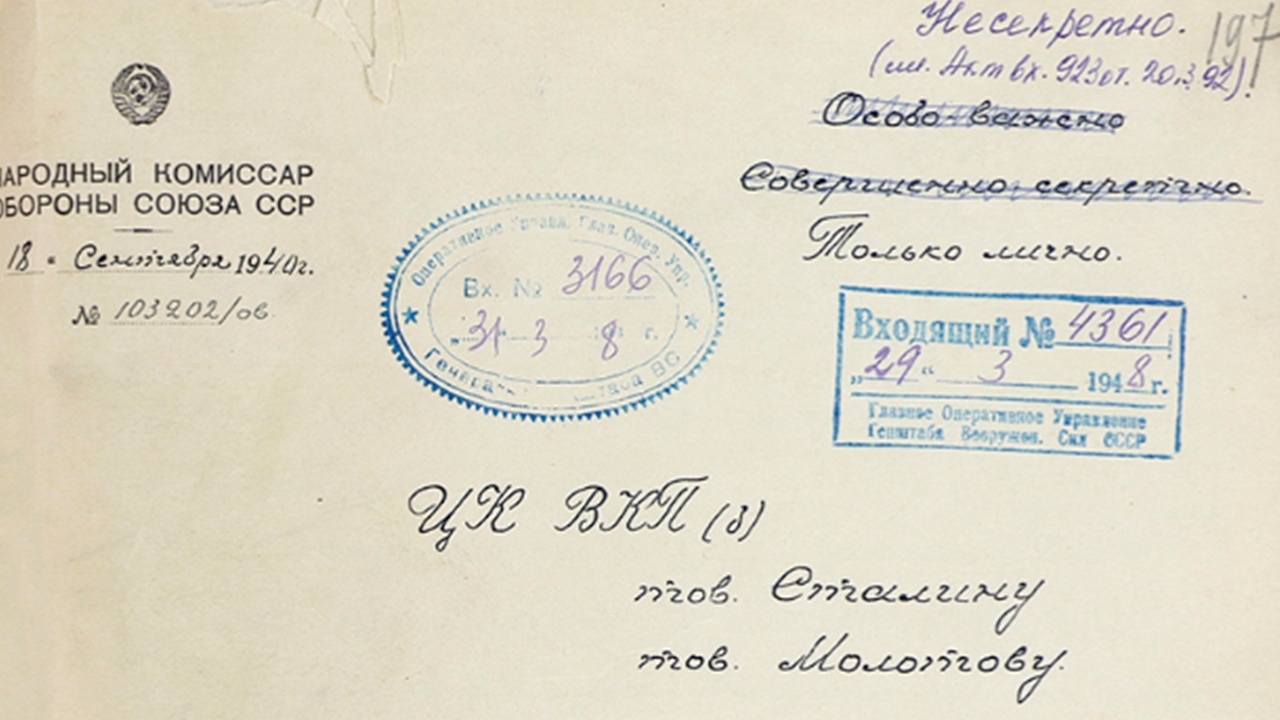 Несекретно.
197
(см. Акт вх. 923 от. 20.3.92).
Особо важно
Совершенно секретно.
Только лично.
НАРОДНЫЙ КОМИССАР
ОБОРОНЫ СОЮЗА ССР
18 " Сентября 1940г.
№ 103202/ов
Оперативное Управл. Глав. Опер. Упр.
Вх. № 3166
„31 3 8 г.
ВС
Входящий № 4361
„29“ 3 1948г.
Главное Оперативное Управление
Генштаба Вооружен. Сил СССР
ЦК ВКП(б)
тов. Сталину
тов. Молотову.